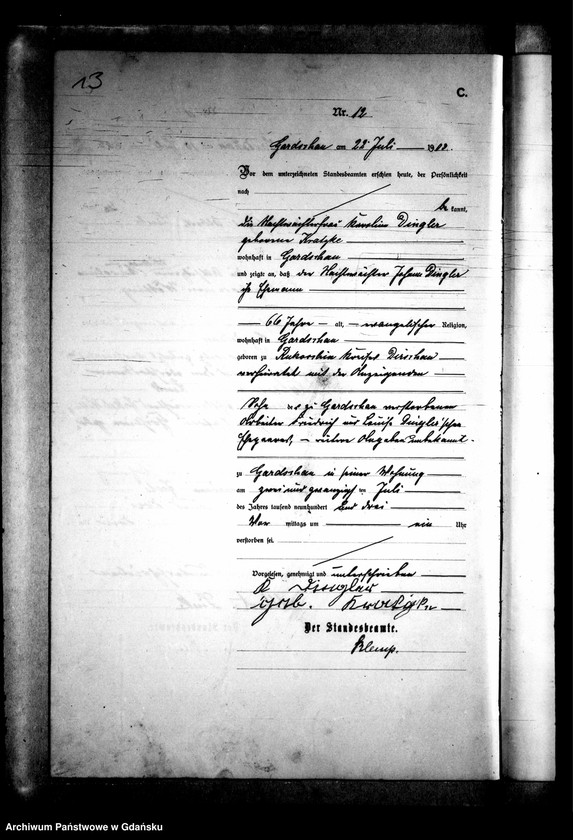 13
C.
Nr. 12
Gardschau am 22 Juli 190
Vor dem unterzeichneten Standesbeamten erschien heute, der Persönlichkeit
nach
be kannt,
die Nachtwächterfrau Karoline Dingler
geborene Kratzke
wohnhaft in Gardschau
und zeigte an, daß der Nachtwächter Johann Dingler
ihr Ehemann
66 Jahre alt, evangelischer Religion,
wohnhaft in Gardschau
geboren zu Rukoschin Kreises Dirschau
verheiratet mit der Anzeigenden
Sohn des zu Gardschau verstorbenen
Arbeiter Friedrich und Louise Dingler'schen
Ehepaares, – weitere Angaben unbekannt.
zu Gardschau in seiner Wohnung
am zwei und zwanzigsten Juli
des Jahres tausend neunhundert und drei
Vor mittags um ein Uhr
verstorben sei.
Vorgelesen, genehmigt und unterschrieben
K Dingler
geb. Kratzke
Der Standesbeamte.
Klemp.
Archiwum Państwowe w Gdańsku